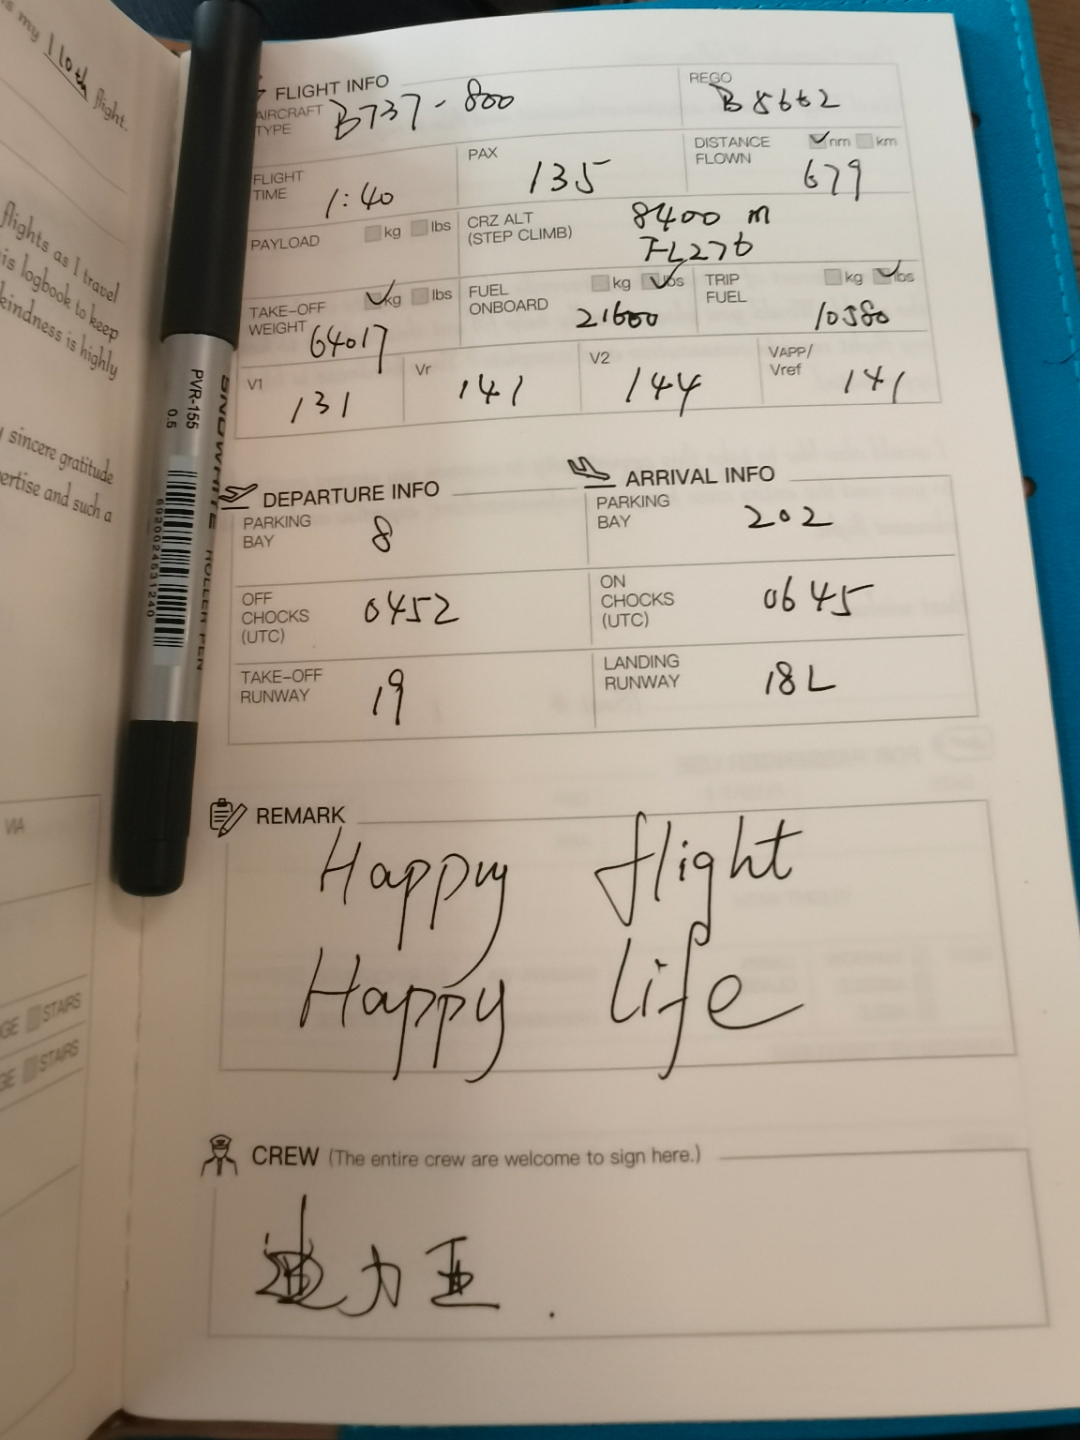 is my 110th flight.
flights as I travel
is logbook to keep
kindness is highly
sincere gratitude
ertise and such a
VIA
GE STAIRS
GE STAIRS
SNOWWHITE ROLLER PEN
PVR-155
0.5
FLIGHT INFO
AIRCRAFT TYPE B737-800
REGO B8662
FLIGHT TIME 1:40
PAX 135
DISTANCE FLOWN nm km 679
PAYLOAD kg lbs
CRZ ALT (STEP CLIMB) 8400 m
FL276
TAKE-OFF WEIGHT kg lbs 64017
FUEL ONBOARD kg lbs 21600
TRIP FUEL kg lbs 10380
V1 131
Vr 141
V2 144
VAPP/ Vref 141
DEPARTURE INFO
PARKING BAY 8
OFF CHOCKS (UTC) 0452
TAKE-OFF RUNWAY 19
ARRIVAL INFO
PARKING BAY 202
ON CHOCKS (UTC) 0645
LANDING RUNWAY 18L
REMARK
Happy flight
Happy life
CREW (The entire crew are welcome to sign here.)
迪力亚.